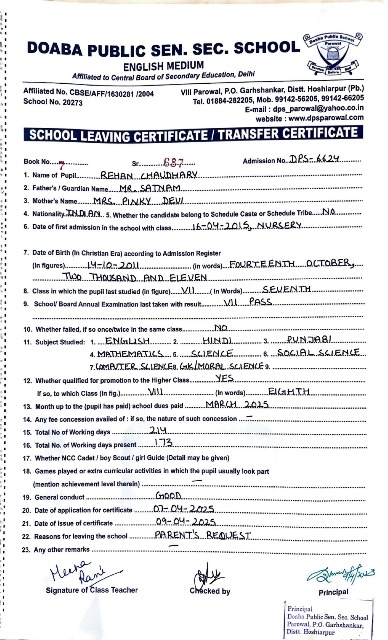 DOABA PUBLIC SEN. SEC. SCHOOL
ENGLISH MEDIUM
Affiliated to Central Board of Secondary Education, Delhi
Affiliated No. CBSE/AFF/1630281 /2004
School No. 20273
Vill Parowal, P.O. Garhshankar, Distt. Hoshiarpur (Pb.)
Tel. 01884-282205, Mob. 99142-56205, 99142-66205
E-mail : dps_parowal@yahoo.co.in
website : www.dpsparowal.com
SCHOOL LEAVING CERTIFICATE / TRANSFER CERTIFICATE
Book No. 7 Sr. 687 Admission No. DPS-6624
1. Name of Pupil REHAN CHAUDHARY
2. Father's / Guardian Name MR. SATNAM
3. Mother's Name MRS. PINKY DEVI
4. Nationality INDIAN 5. Whether the candidate belong to Schedule Caste or Schedule Tribe NO
6. Date of first admission in the school with class 16-04-2015, NURSERY
7. Date of Birth (In Christian Era) according to Admission Register
(In figures) 14-10-2011 (in words) FOURTEENTH OCTOBER,
TWO THOUSAND AND ELEVEN
8. Class in which the pupil last studied (in figure) VII (In Words) SEVENTH
9. School/ Board Annual Examination last taken with result VII PASS
10. Whether failed, if so once/twice in the same class NO
11. Subject Studied: 1. ENGLISH 2. HINDI 3. PUNJABI
4. MATHEMATICS 5. SCIENCE 6. SOCIAL SCIENCE
7. COMPUTER SCIENCE 8. GK/MORAL SCIENCE 9.
12. Whether qualified for promotion to the Higher Class YES
If so, to which Class (in fig.) VIII (in Words) EIGHTH
13. Month up to the (pupil has paid) school dues paid MARCH 2025
14. Any fee concession availed of : if so, the nature of such concession –
15. Total No. of Working days 214
16. Total No. of Working days present 173
17. Whether NCC Cadet / boy Scout / girl Guide (Detail may be given)
18. Games played or extra curricular activities in which the pupil usually look part
(mention achievement level therein) —
19. General conduct GOOD
20. Date of application for certificate 07-04-2025
21. Date of issue of certificate 09-04-2025
22. Reasons for leaving the school PARENT'S REQUEST
23. Any other remarks —
Meena Rani
Signature of Class Teacher Checked by Principal
Principal
Doaba Public Sen. Sec. School
Parowal, P.O. Garhshankar,
Distt. Hoshiarpur